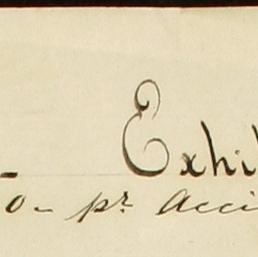 - Exhi
o- pr. Acci